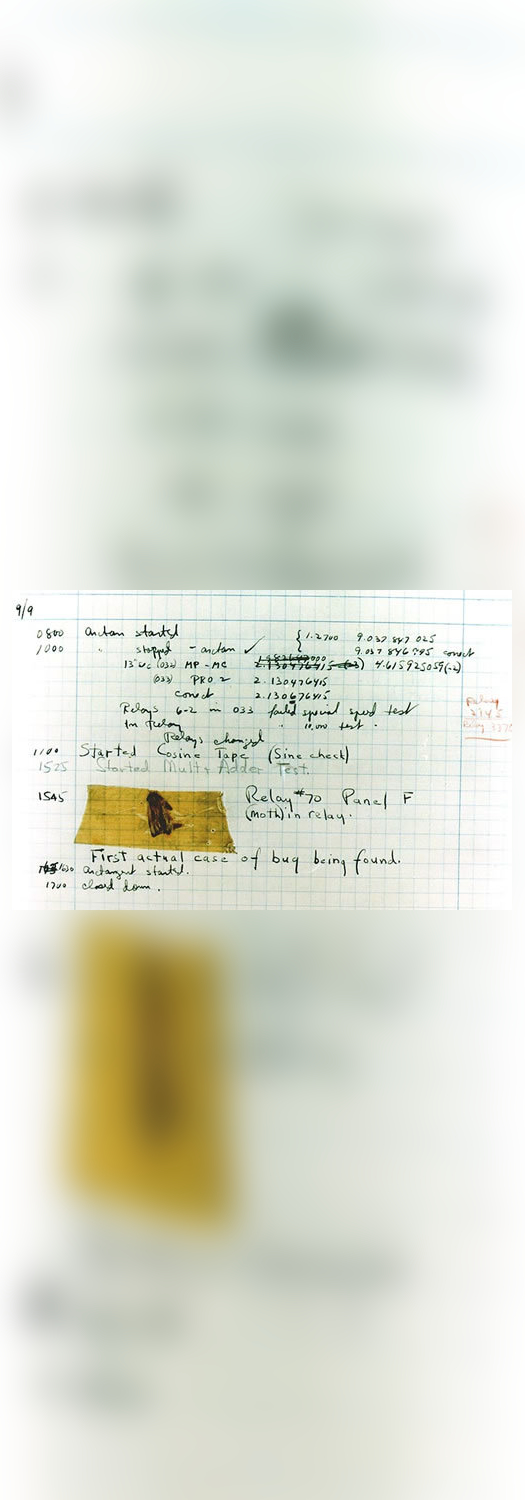 9/9
0800 Antan started
1000 " stopped - antan ✓ { 1.2700 9.037 847 025
9.037 846 795 correct
13"uc (032) MP - MC 2.130476415 (-3) 4.615925059(-2)
(033) PRO 2 2.130476415
correct 2.130676415
Relays 6-2 in 033 failed special speed test
In Relay " 10,000 test.
Relays changed
Relay
1100 Started Cosine Tape (Sine check)
1525 Started Mult + Adder Test.
1545 Relay #70 Panel F
(moth) in relay.
First actual case of bug being found.
1630 antangent started.
1700 closed down.